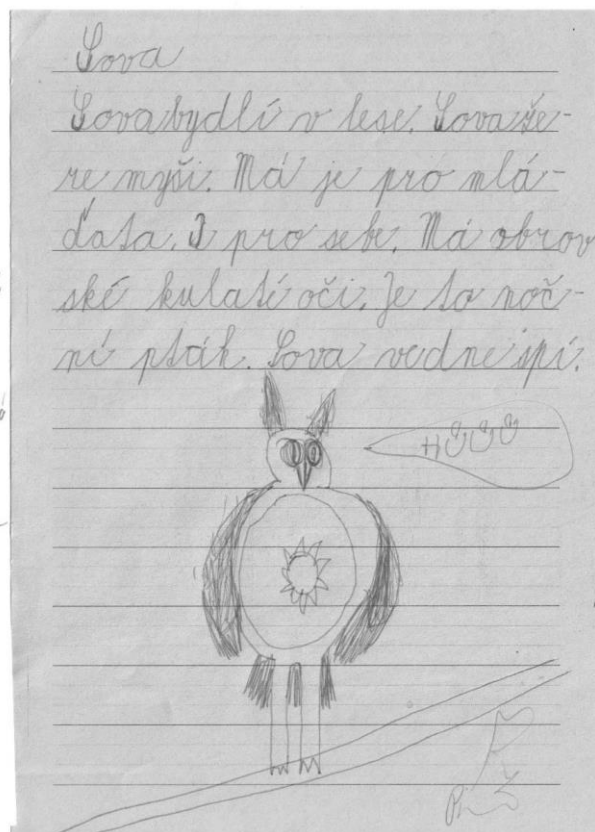 Sova
Sova bydlí v lese. Sova že-
re myši. Má je pro mlá-
ďata. I pro sebe. Má obrov
ské kulaté oči. Je to noč-
ní pták. Sova ve dne spí.
HŮŮŮ